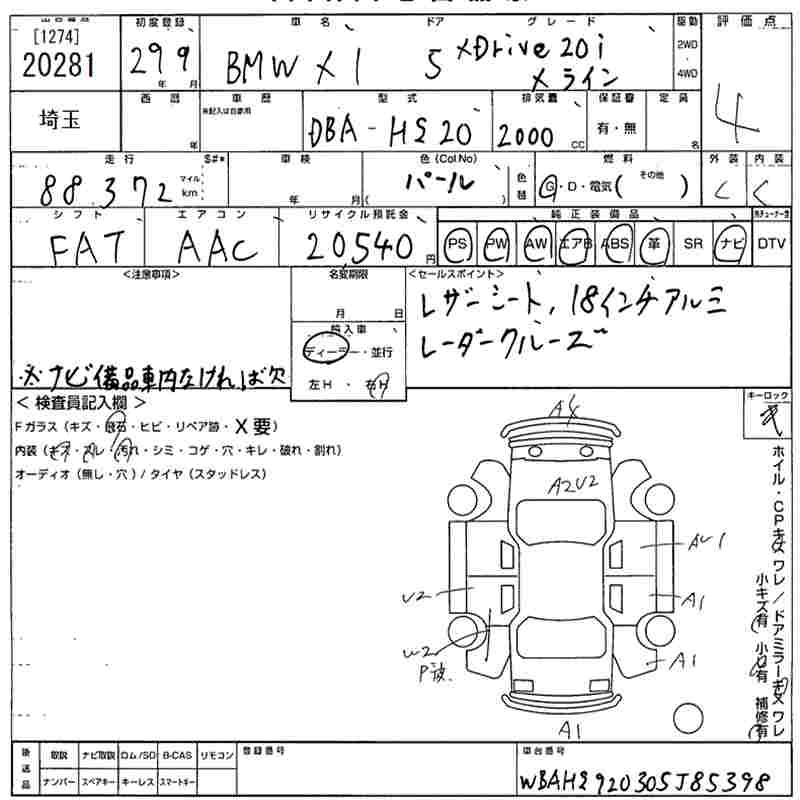 [1274]
20281
初度登録
29 9
年 月
車名
BMW X1
ドア
5
グレード
xDrive20i
xライン
駆動
2WD
4WD
評価点
4
埼玉
西暦
年
車歴
※記入は自家用
型式
DBA-HS20
排気量
2000
CC
保証書
有・無
定員
名
走行
88,372
マイル
km
S#*
車検
年 月(
色(Col No)
パール
色替
燃料
G・D・電気( その他 )
外装
C
内装
C
シフト
FAT
エアコン
AAC
リサイクル預託金
20,540
円
純正装備品
PS PW AW エアB ABS 革 SR ナビ
地デジチューナー
DTV
<注意事項>
※ナビ備品車内なければ欠
名変期限
月 日
輸入車
ディーラー・並行
左H・右H
<セールスポイント>
レザーシート、18インチアルミ
レーダークルーズ
<検査員記入欄>
Fガラス(キズ・飛石・ヒビ・リペア跡・X要)
内装(キズ・スレ・汚れ・シミ・コゲ・穴・キレ・破れ・割れ)
オーディオ(無し・穴)/タイヤ(スタッドレス)
キーロック
ホイル・CPキズ ワレ/ドアミラーキズ ワレ
小キズ有 小凹有 補修有
A4
A2U2
AU1
U2
A1
W2
P波.
A1
A1
後送品
取説 ナビ取説 ロム/SD B-CAS リモコン
ナンバー スペアキー キーレス スマートキー
登録番号
車台番号
WBAHS920305J85398